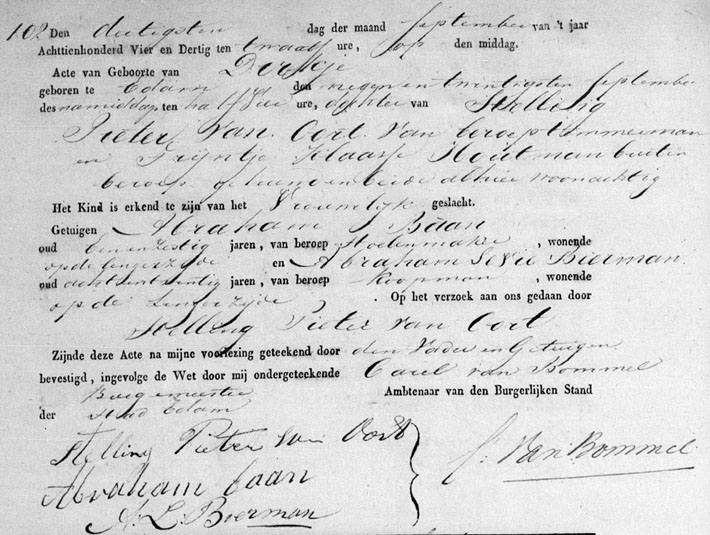 102 Den dertigsten dag der maand September van 't jaar
Achttienhonderd Vier en Dertig ten twaalf ure, op den middag.
Acte van Geboorte van Dirkje
geboren te Edam den negen en twintigsten September
des namiddag ten half vier ure, dochter van Stelling
Pieter Van Oort Van beroep timmerman
en Trijntje Klaasse Houtman buiten
beroep gehuwd en beide alhier woonachtig
Het Kind is erkend te zijn van het Vrouwelijk geslacht.
Getuigen Abraham Baan
oud een en zestig jaren, van beroep Stoelenmaker, wonende
op de Lingerzijde en Abraham Bierman
oud acht en twintig jaren, van beroep Koopman, wonende
op de Lingerzijde. Op het verzoek aan ons gedaan door
Stelling Pieter Van Oort
Zijnde deze Acte na mijne voorlezing geteekend door den Vader en Getuigen
bevestigd, ingevolge de Wet door mij ondergeteekende Carel van Bommel
Burgemeester Ambtenaar van den Burgerlijken Stand
der Stad Edam
Stelling Pieter van Oort
Abraham Baan
A: L: Bierman
C: Van Bommel